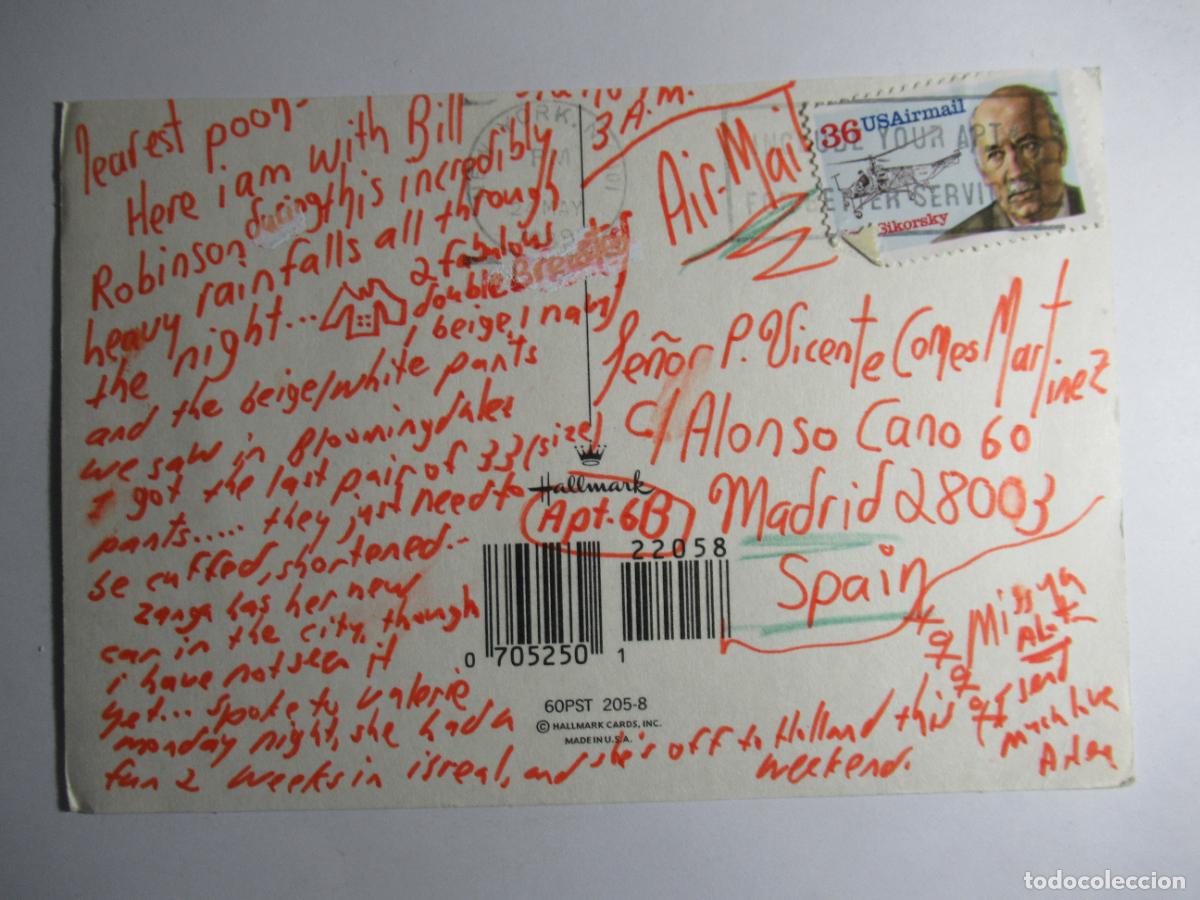 3 A.M.
Dearest poon
Here i am with Bill
Robinson during this incredibly
heavy rainfalls all through
the night... 2 fabulous
double Breasted
1 beige, 1 navy
and the beige/white pants
we saw in Bloomingdales
I got the last pair of 33 (size)
pants.... they just need to
be cuffed, shortened..
Zanga has her new
car in the city, though
i have not seen it
yet... spoke to Valerie
monday night, she had a
fun 2 weeks in isreal, and she's off to Holland this
weekend.
Miss ya
ALot
I send
much love
Air-Mail
Señor P. Vicente Comes Mart
inez
C/ Alonso Cano 60
Apt. 6B
Madrid 28003
Spain
Hallmark
22058
0 705250 1
60PST 205-8
© HALLMARK CARDS, INC.
MADE IN U.S.A.
36 USAirmail
Sikorsky
YORK, N
PM
MAY
USE YOUR APT
FOR BETTER SERVI
todocoleccion